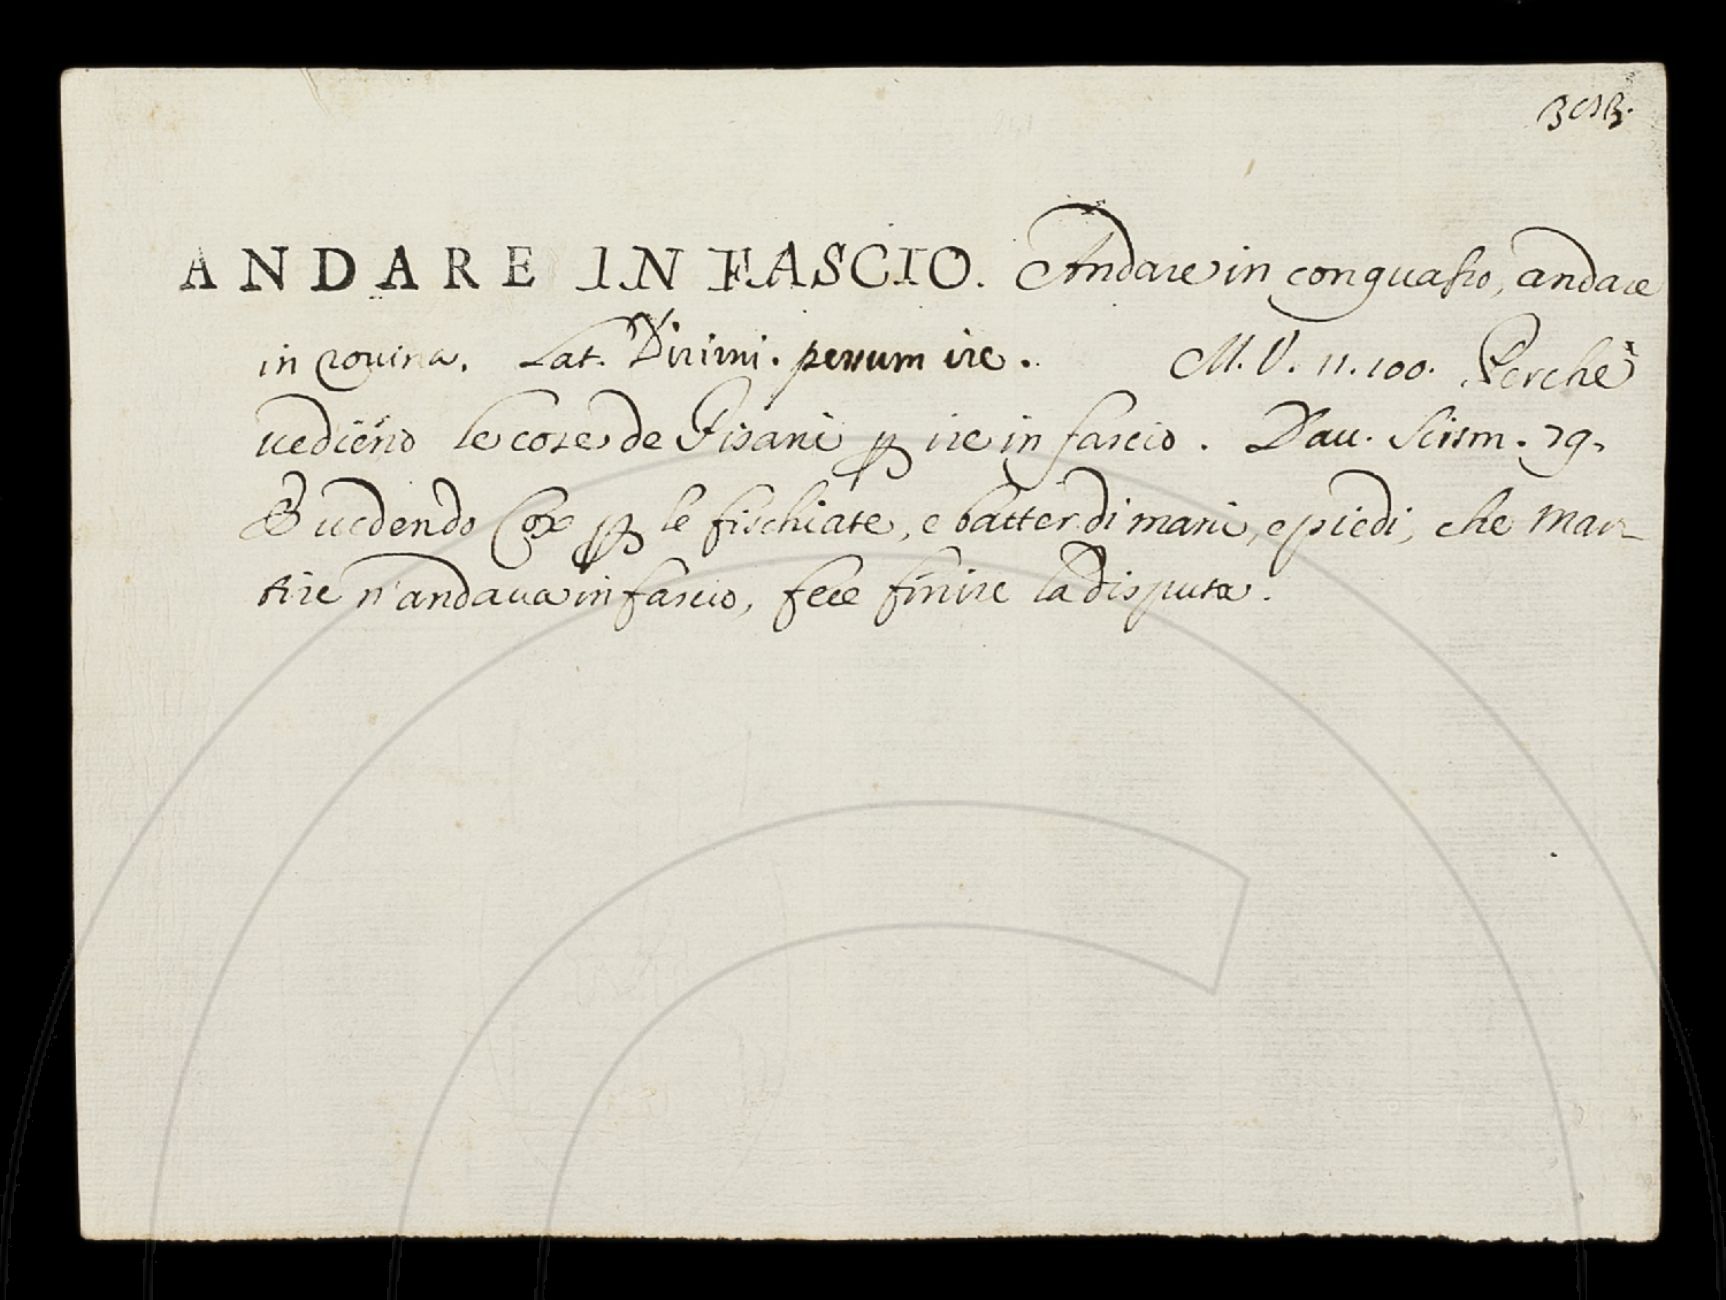 ANDARE IN FASCIO. Andare in conquasso, andare
in rovina. Lat. Dirimi. pessum ire. M. V. 11. 100. Perchè
vediéno le cose de Pisani ire in fascio. Dav. Scism. 79.
E vedendo le fischiate, e batter di mani, e piedi, che Mar-
tire n'andava in fascio, fece finire la disputa.